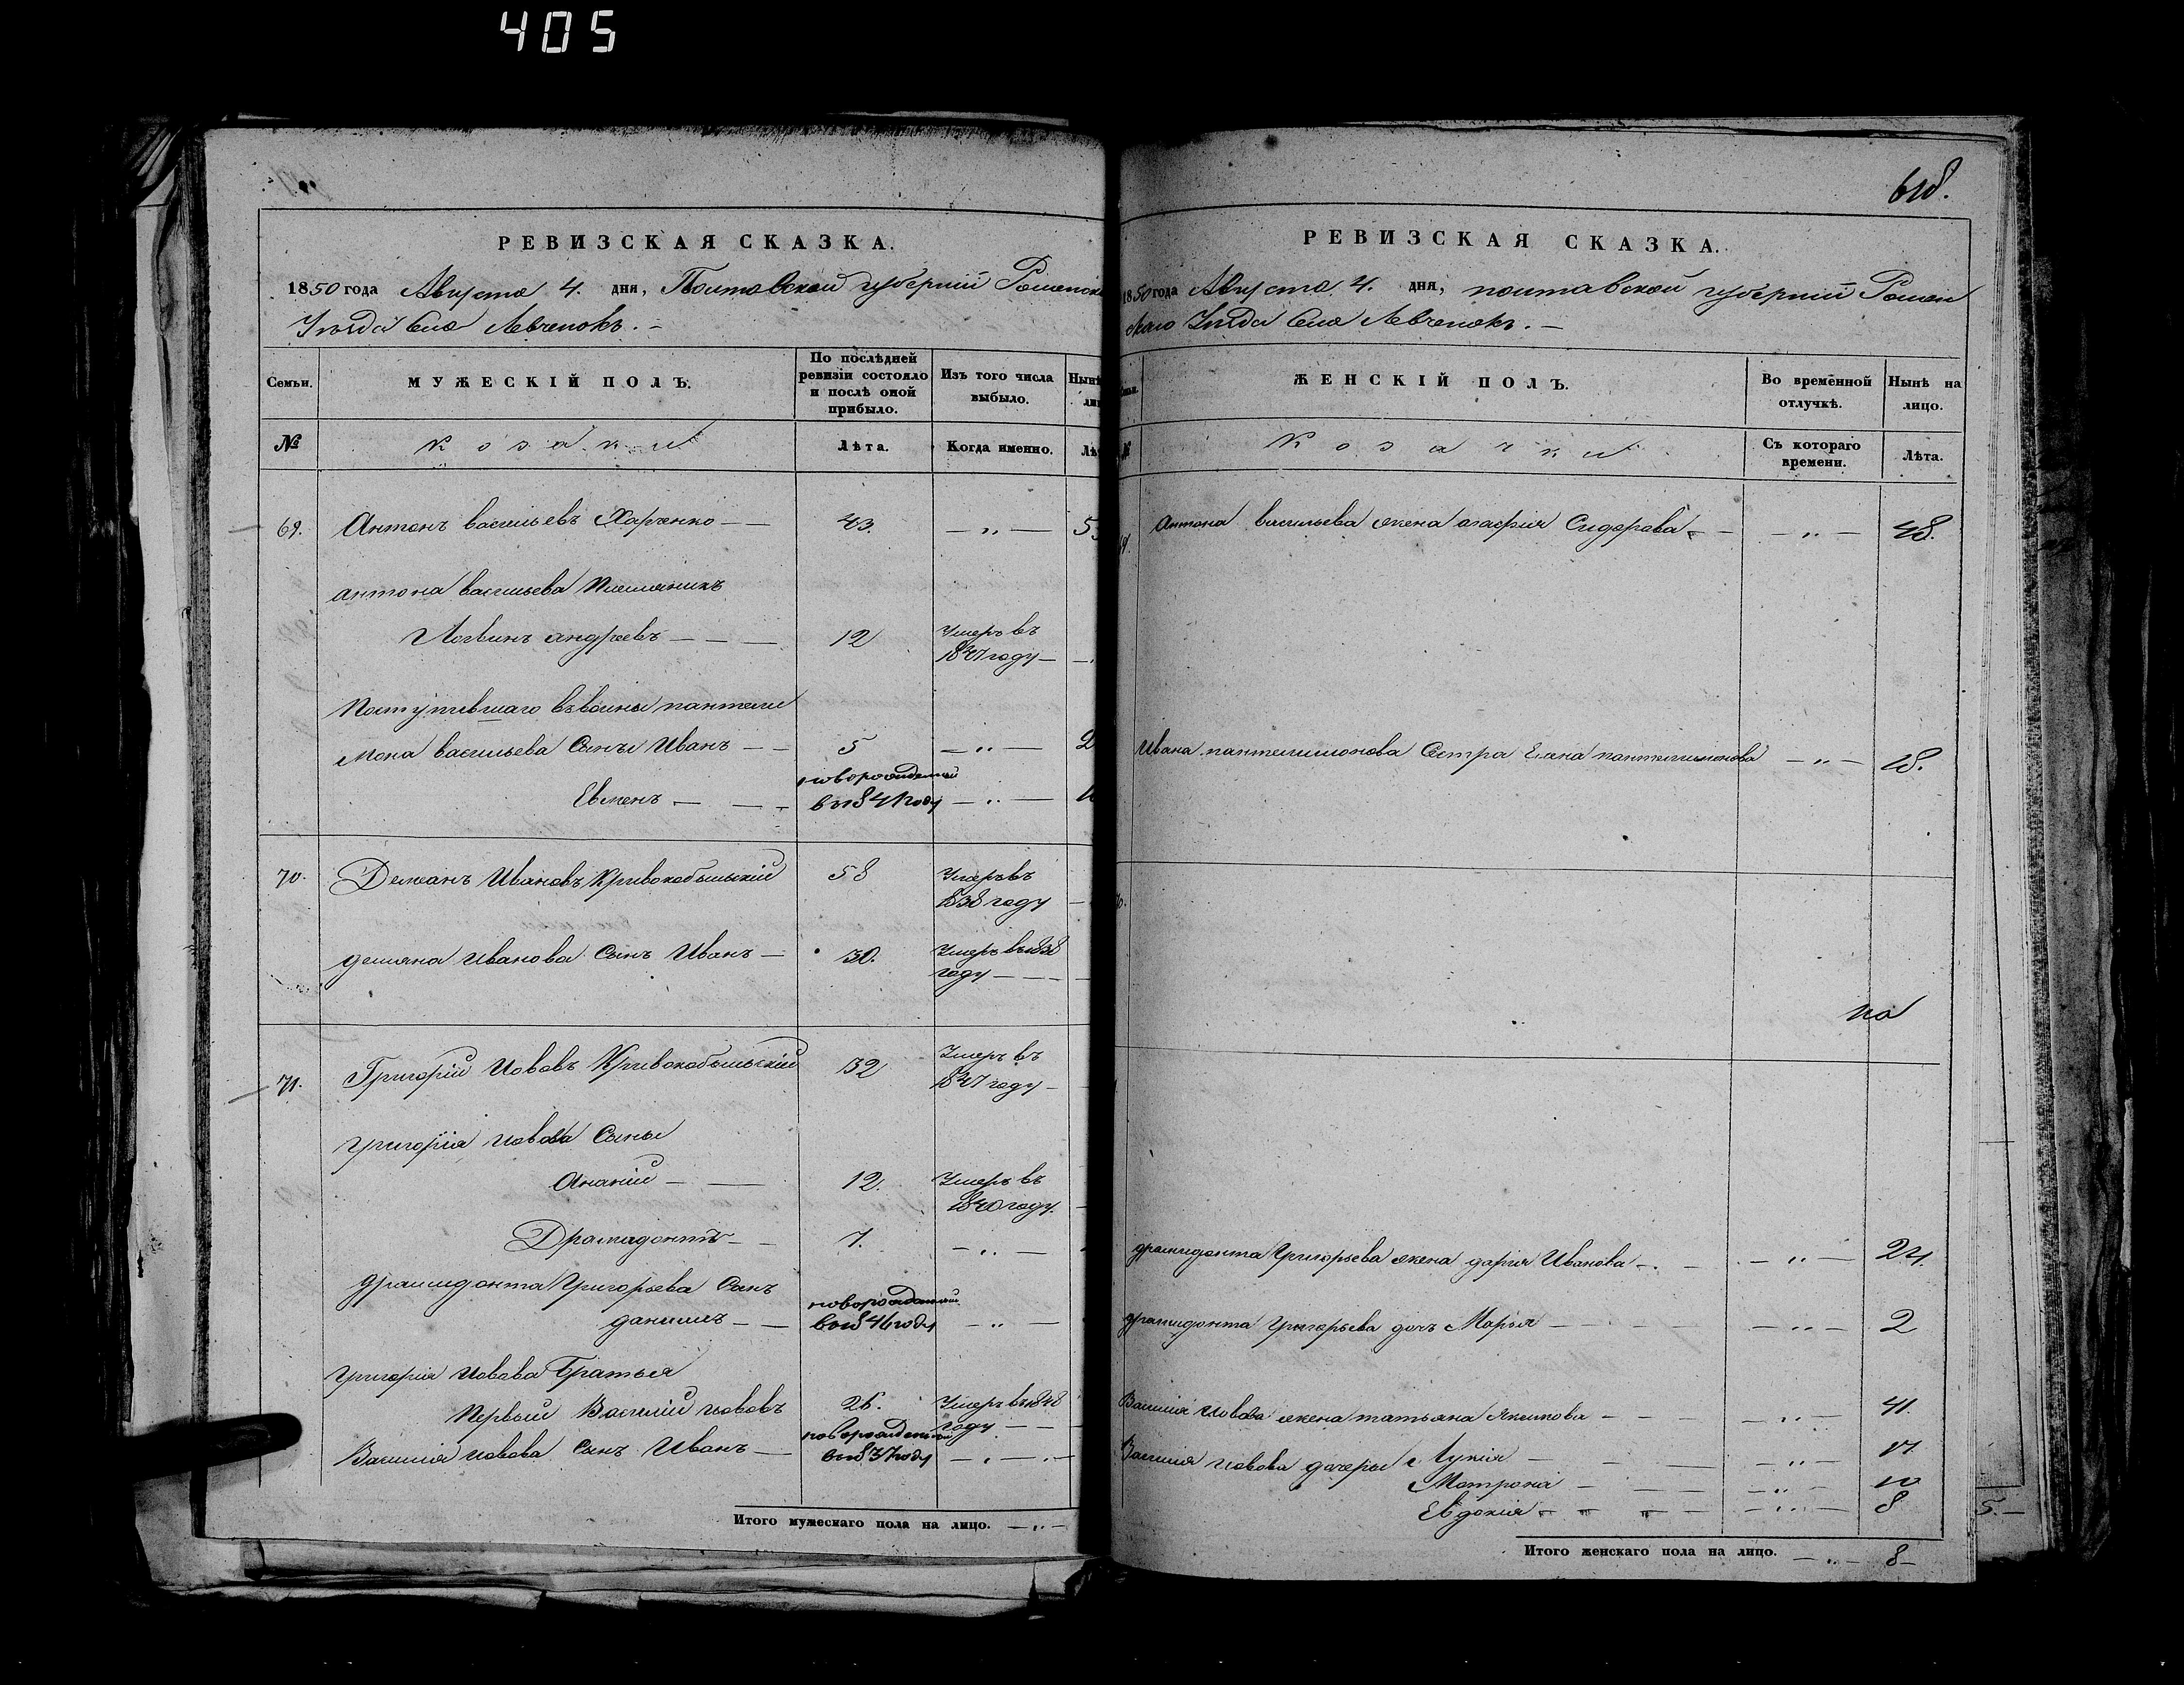 405
РЕВИЗСКАЯ СКАЗКА.
1850 года Августа 4. дня, Полтавской губернии Роменска
Уѣзда Села Левченокъ. —
Семьи.
МУЖЕСКІЙ ПОЛЪ.
По послѣдней ревизіи состояло и послѣ оной прибыло.
Изъ того числа выбыло.
№
Козаки
Лѣта.
Когда именно.
69. Антонъ васильевъ Харченко — — 43. — „ —
антона васильева Племяникъ
Логвинъ андреевъ — — — 12 Умеръ въ
1847 году —
Поступившаго въ воины пантели
мона васильева Сыны Иванъ — — 5 — „ —
новорожденный
Евменъ — — — въ 1841 году — „ —
70. Демянъ Ивановъ Кривокобыльскій 58 Умеръ въ
1838 году
демяна Иванова Сынъ Иванъ — 30. Умеръ въ 1838
году — —
71. Григорій Іововъ Кривокобыльскій 32 Умеръ въ
1847 году —
григорія Іовова Сыны
Ананій — — 12. Умеръ въ
1840 году.
Драмадонтъ — — 7. — „ —
драмидонта Григорьева Сынъ
новорожденный
данилъ — — въ 1846 году — „ —
григорія Іовова Братья
Первый Василій Іововъ 26. Умеръ въ 1848
году — —
новорожденный
Василія Іовова Сынъ Иванъ — въ 1837 году — „ —
Итого мужескаго пола на лицо. — „ —
618.
РЕВИЗСКАЯ СКАЗКА.
1850 года Августа 4. дня, полтавской губерніи Ромен
скаго Уѣзда Села Левченокъ. —
ЖЕНСКІЙ ПОЛЪ.
Во временной отлучкѣ.
Нынѣ на лицо.
№
Козачки
Съ котораго времени.
Лѣта.
Антона васильева жена агафия Сидорова — — — „ — 48.
Ивана пантелимонова Сестра Елена пантелимонова — „ — 18.
на
драмидонта Григорьева жена дария Иванова — — — „ — 24.
драмидонта Григорьева дочь Марья — — — „ — 2
Василія Іовова жена татьяна Якимова — — — „ — 41.
Василія Іовова дочеры Лукія — — — „ — 17.
Матрона — — — — „ — 10
Евдокия — — — — „ — 8
Итого женскаго пола на лицо. — „ — 8 —
5. —